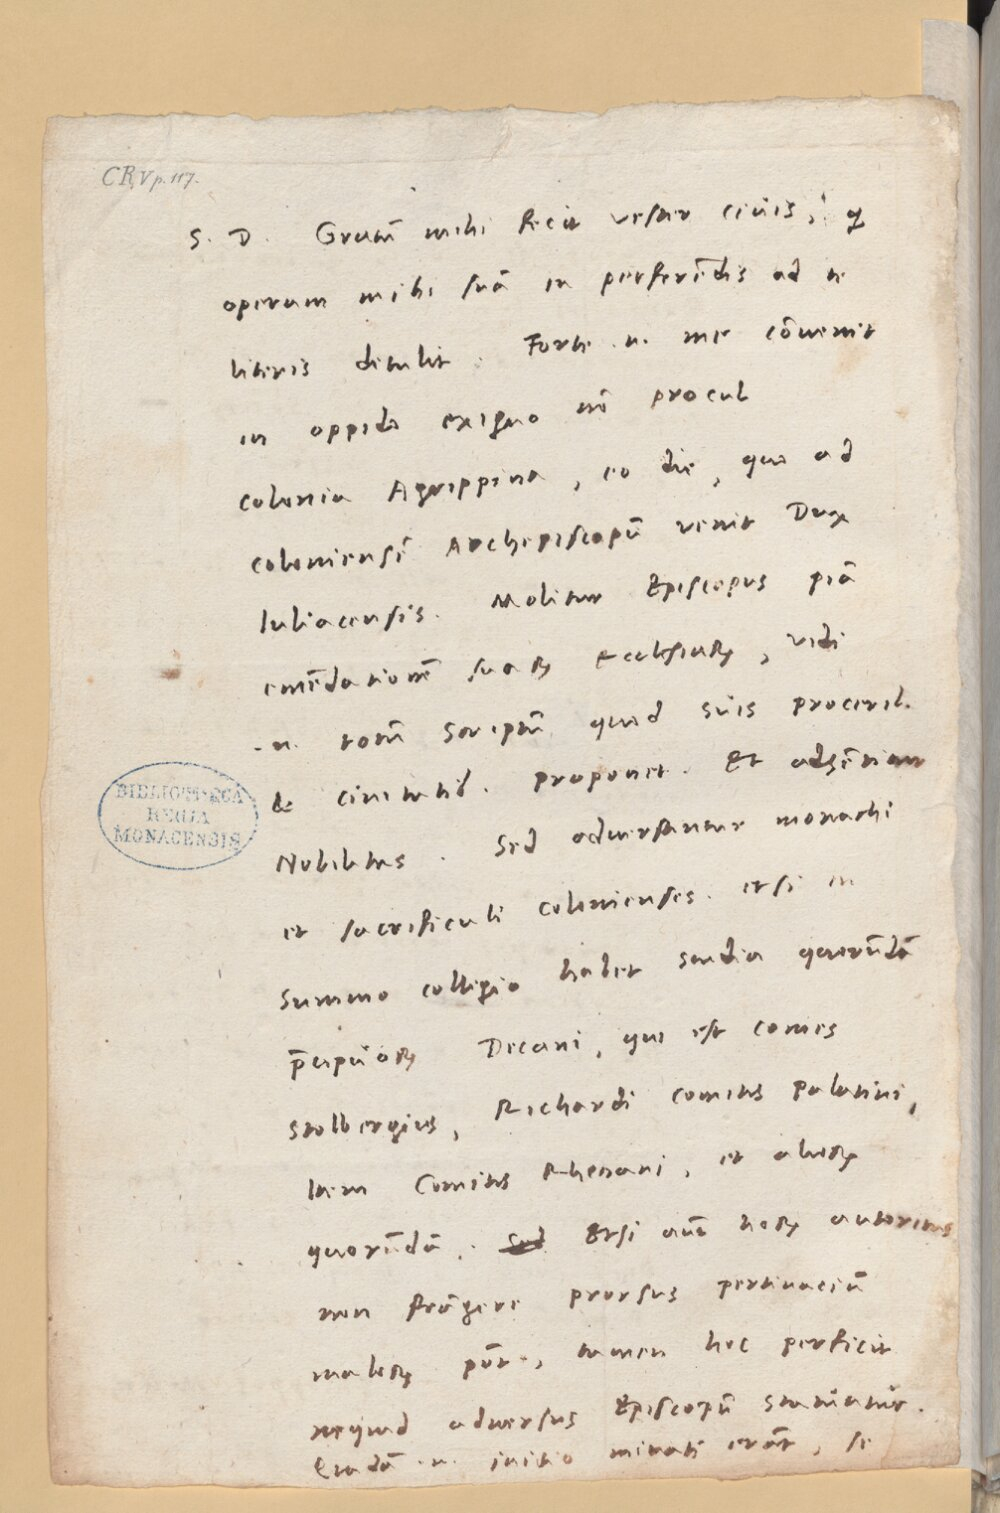 CR V p. 117.
S. D. Gratū mihi fecit vester civis, q
operam mihi suā in perferēdis ad te
literis detulit. Forte .n. me cōvenit
in oppido exiguo nō procul
colonia Agrippina, eo die, quo ad
coloniensē Archepiscopū venit Dux
Iuliacensis. Molitur Episcopus piā
emēdationē suaꝝ Ecclesiaꝝ, vidi
.n. totū scriptū quod suis procerib.
& civitatib. proponet. Et adsētiatur
Nobilitas. Sed adversantur monachi
et sacrificuli colonienses. etsi in
summo collegio habet studia quorūdā
p̄cipuoꝝ Decani, qui est comes
stolbergius, Richardi comitis palatini,
Item Comitis Rhenani, et alioꝝ
quorūdā. Etsi autē hoꝝ autoritas
non frāgere prorsus pertinaciā
maloꝝ pōt, tamen hoc perficit
nequid adversus Episcopū statuatur.
Quidā .n. initio minati erāt, se
BIBLIOTHECA
REGIA
MONACENSIS